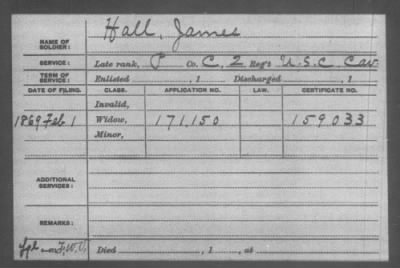 NAME OF SOLDIER: Hall, James
SERVICE: Late rank, P Co. C, 2 Reg't U.S.C. Cav
TERM OF SERVICE: Enlisted , 1 Discharged , 1
DATE OF FILING. CLASS. APPLICATION NO. LAW. CERTIFICATE NO.
Invalid,
1869 Feb 1 Widow, 171,150 159033
Minor,
ADDITIONAL SERVICES:
REMARKS:
Died , 1 , at